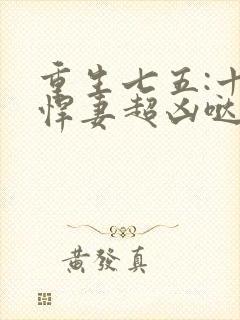 重生七五:十
悍妻超凶哒
黄發真